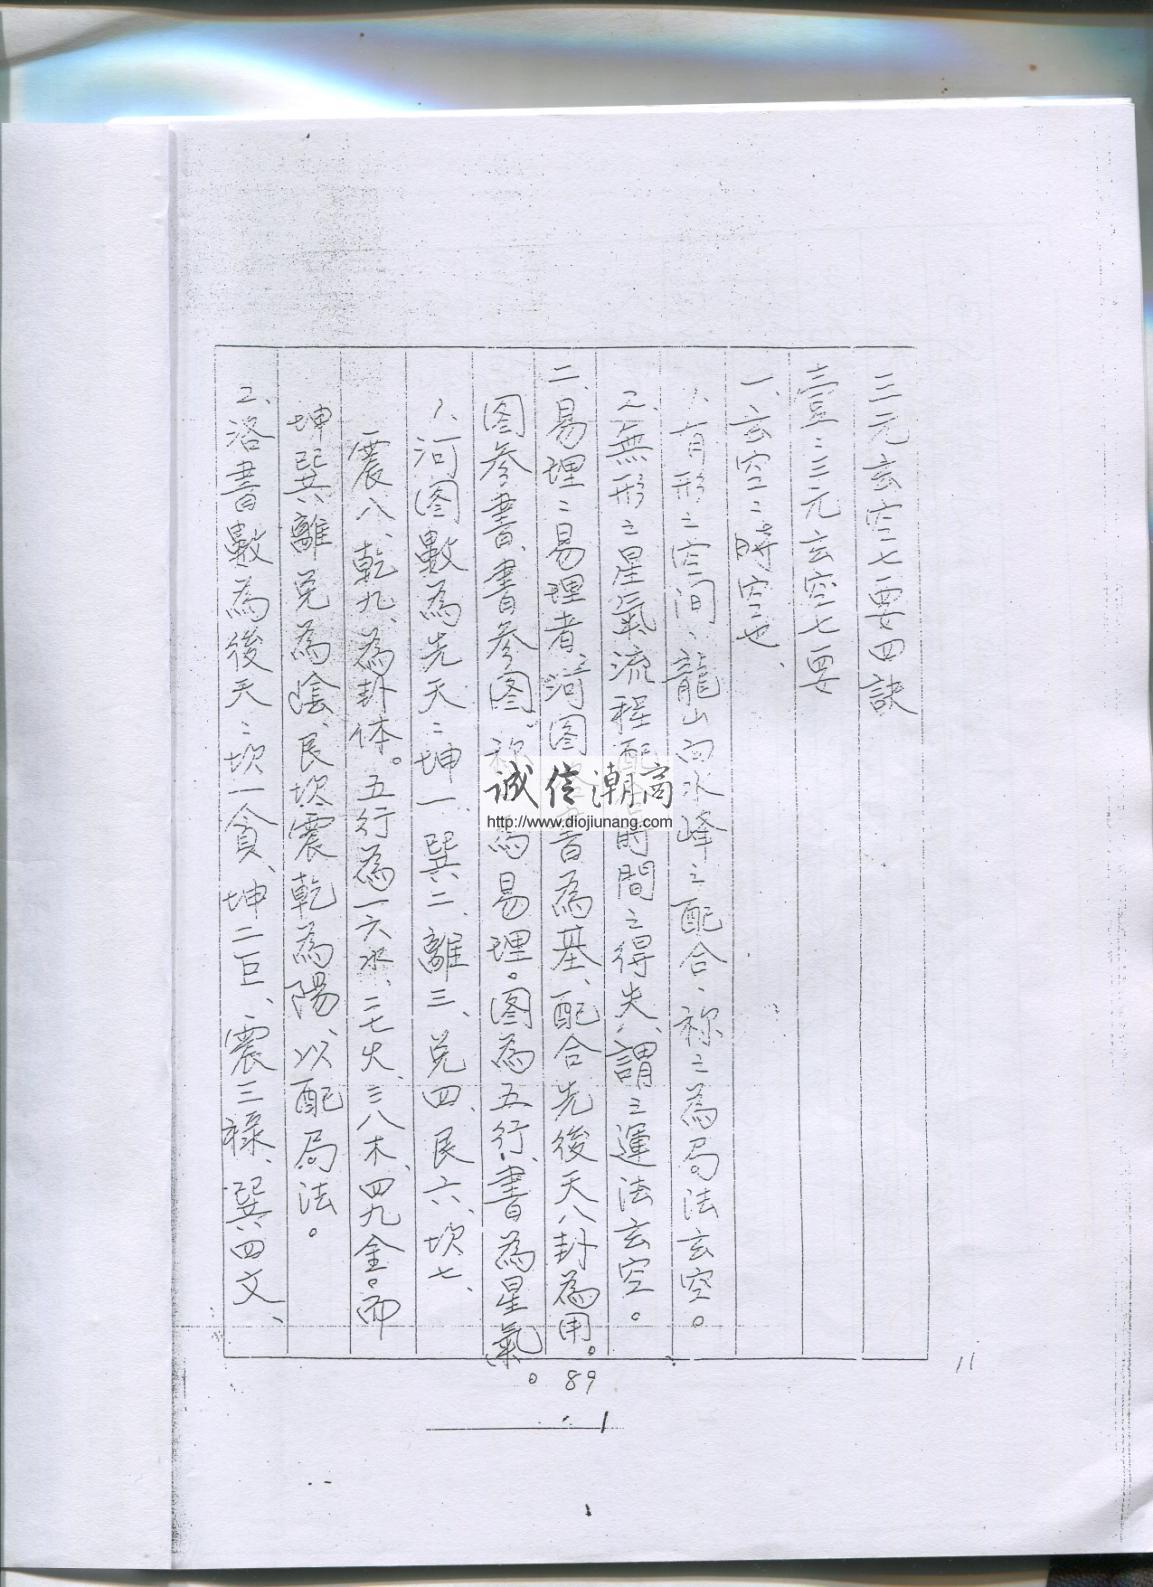 三元玄空七要四訣
壹：三元玄空七要
一、玄空：時空也、
1、有形之空间、龍山向水峰之配合、称之為局法玄空。
2、無形之星氣流程配 時間之得失、謂之運法玄空。
二、易理：易理者、河图 書為基、配合先後天八卦為用。
图参書、書参图、称 為易理。图為五行、書為星氣。
1、河图數為先天：坤一、巽二、離三、兑四、艮六、坎七、
震八、乾九、為卦体。五行為一六水、二七火、三八木、四九金。而
坤巽離兑為陰、艮坎震乾為陽、以配局法。
2、洛書數為後天：坎一貪、坤二巨、震三祿、巽四文、
诚信潮商
http://www.diojiunang.com
89
1
11